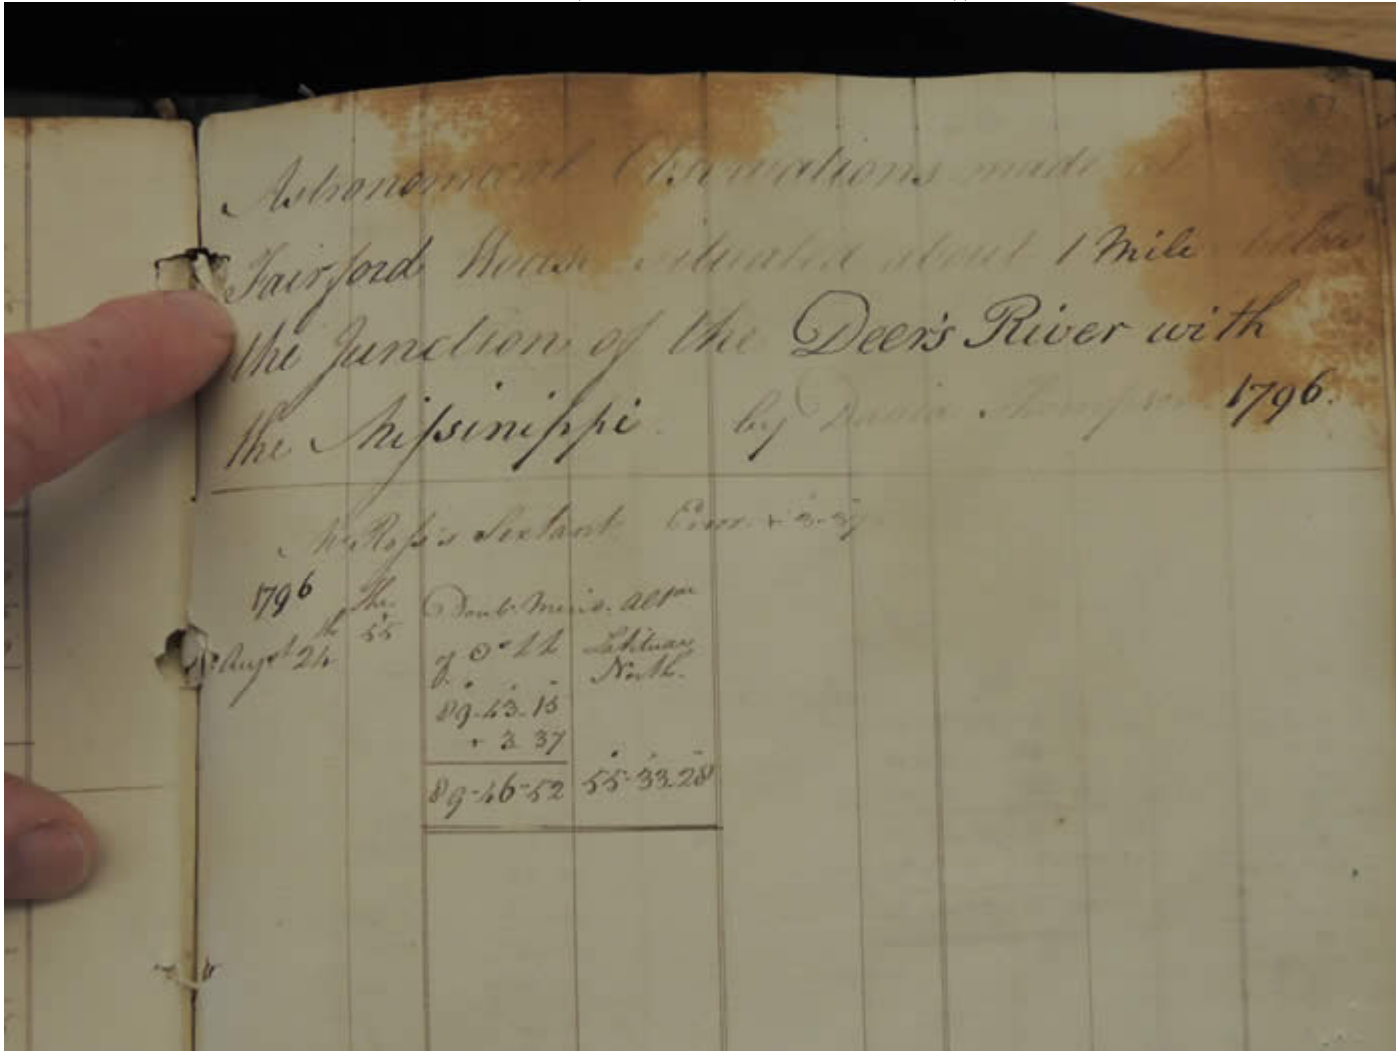 Astronomical Observations made at
Fairford House situated about 1 Mile below
the Junction of the Deer's River with
the Missinippi by David Thompson 1796.
Mr Ross's Sextant Error + 3-37
1796 Ther Doub. Merid. Altde
Augst 24th 55 of ⊙'s LL Latitude
North.
89-43-15
+ 3 37
89-46-52 55-33-28